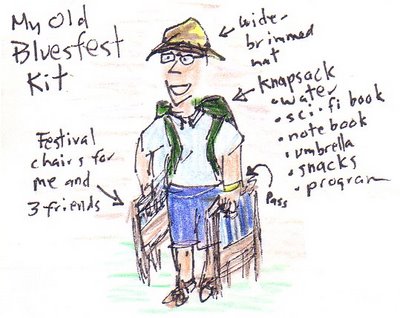 My Old
Bluesfest
Kit
wide-
brimmed
hat
Knapsack
• water
• sci-fi book
• notebook
• umbrella
• snacks
• program
Festival
chairs for
me and
3 friends
Pass